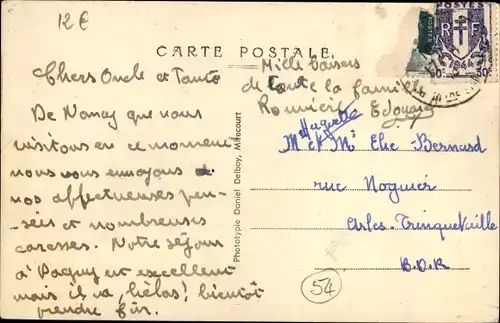 12€
CARTE POSTALE
POSTES
RF
1944
Mille baisers
de toute la famille
Chers Oncle et Tante
De Nancy que nous
visitons en ce moment
nous vous envoyons
nos affectueuses pen-
sées et nombreuses
caresses. Notre séjour
à Pagny est excellent
mais il va, hélas! bientôt
prendre fin.
Edouard
Huguette
Phototypie Daniel Delboy, Mirecourt
M et Mme Elie Bernard
rue Noguier
Arles-Trinquetaille
B.D.R
54